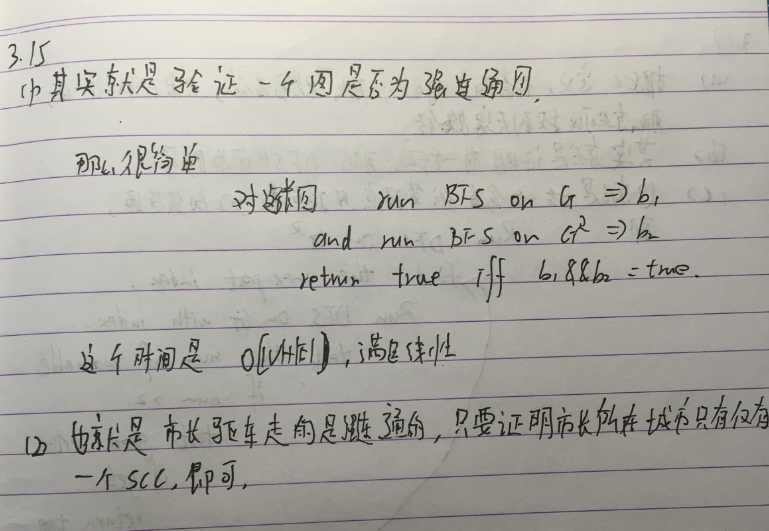 3.15
(1) 其实就是验证一个图是否为强连通图.
那么很简单
对 图 run BFS on G => b₁
and run BFS on G² => b₂
return true iff b₁&&b₂ = true.
这个时间是 O(|V|+|E|), 满足线性
(2) 也就是市长驱车走的是强连通的, 只要证明市长所在城市只有仅有
一个SCC, 即可.